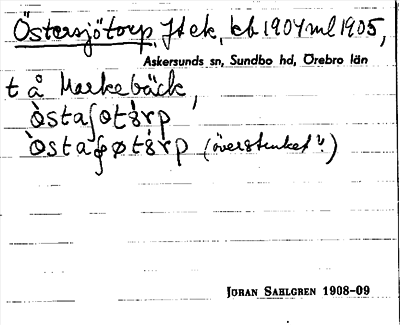 Östersjötorp, Jtek, kb 1904 ml 1905,
Askersunds sn, Sundbo hd, Örebro län
t å Markebäck,
òstaʃotàrp
òsta ʂøtàrp (överstruket?)
JÖRAN SAHLGREN 1908-09